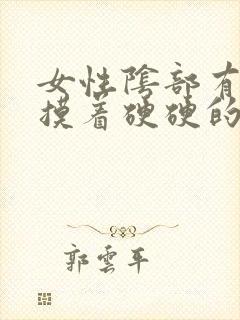 女性陰部有
摸着硬硬的
郭雲平